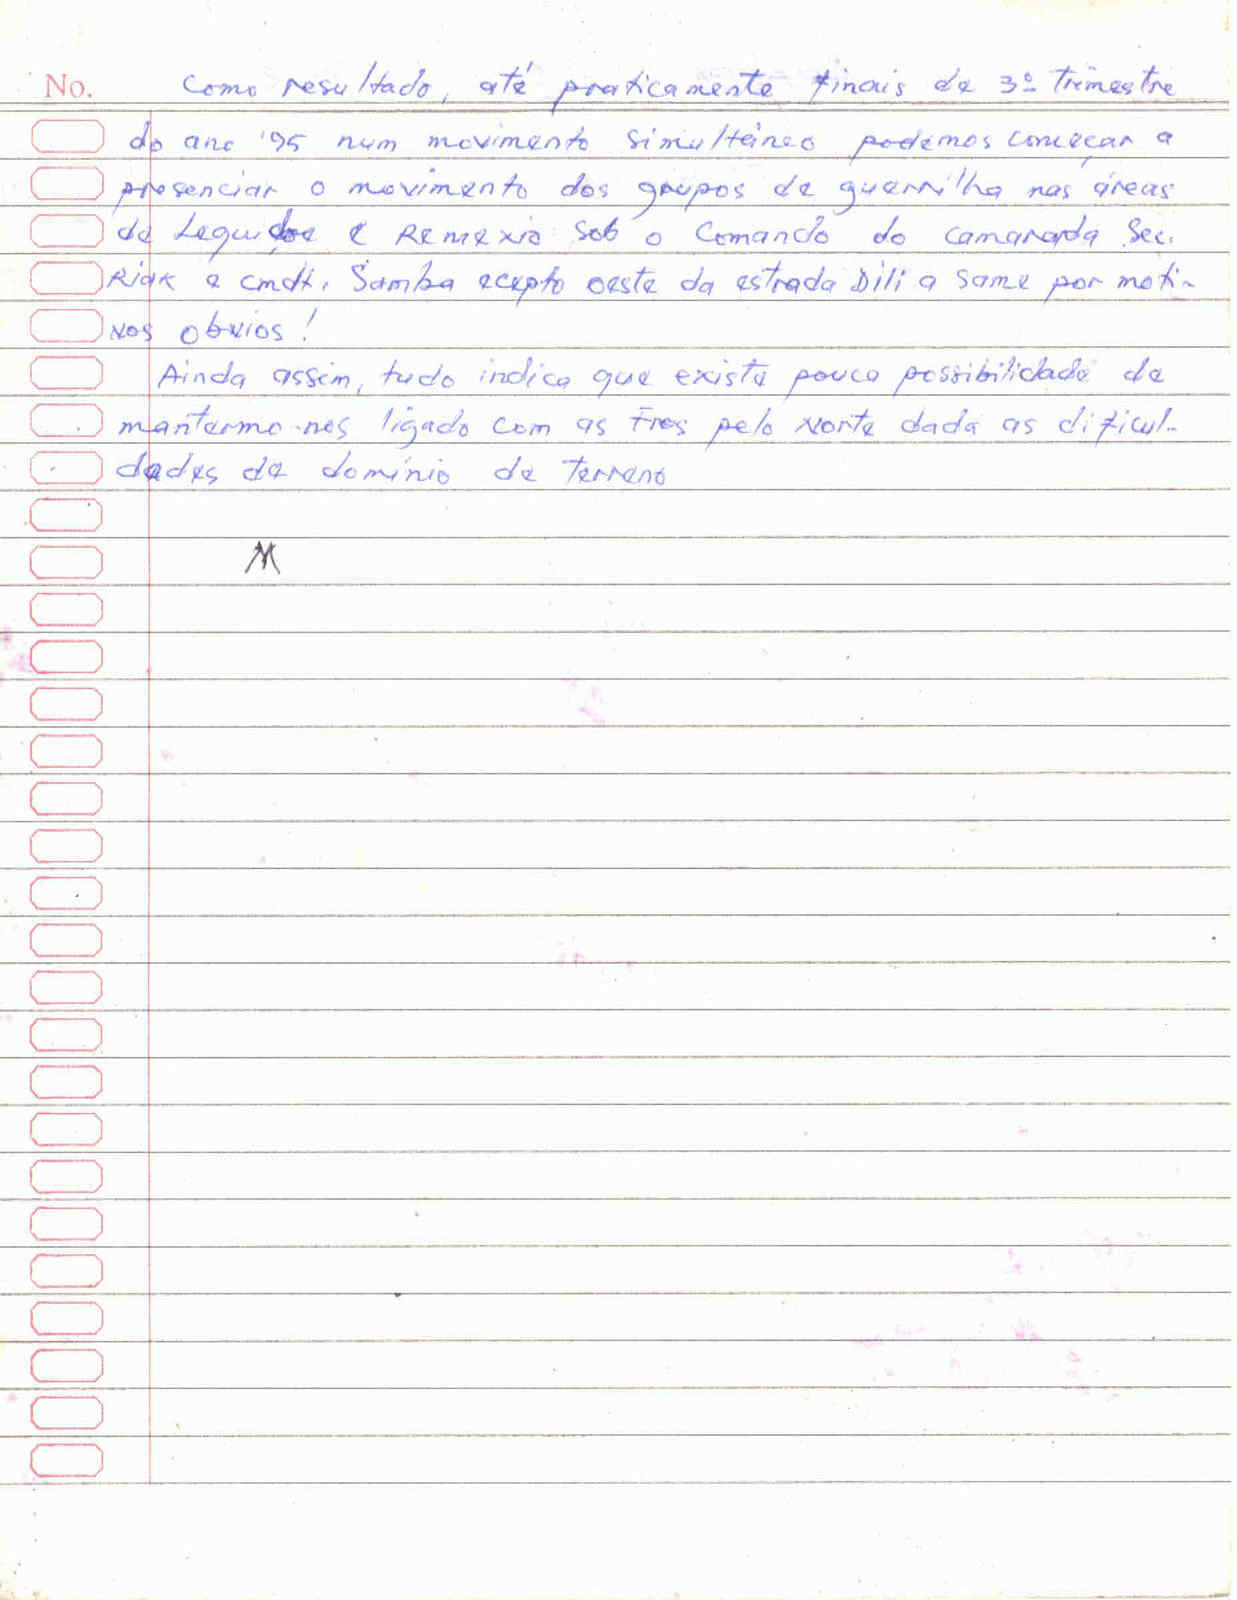 No. Como resultado, até praticamente finais de 3º trimestre
do ano '95 num movimento simultâneo podemos começar a
presenciar o movimento dos grupos de guerrilha nas áreas
de e Remexio sob o Comando do camarada Sec.
Riak e cmdt. Samba ecepto oeste da estrada Dili a Same por moti-
vos obvios!
Ainda assim, tudo indica que existe pouca possibilidade de
mantermo-nos ligado com as Fres pelo Norte dada as dificul-
dades de domínio de terreno